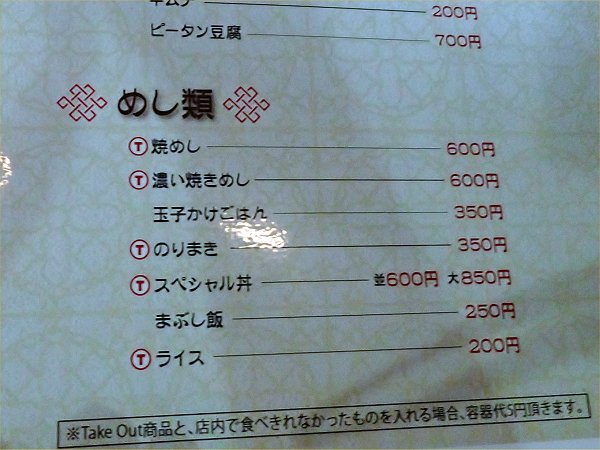 キムチ 200円
ピータン豆腐 700円
めし類
Ⓣ焼めし 600円
Ⓣ濃い焼きめし 600円
玉子かけごはん 350円
Ⓣのりまき 350円
Ⓣスペシャル丼 並600円 大850円
まぶし飯 250円
Ⓣライス 200円
※Take Out商品と、店内で食べきれなかったものを入れる場合、容器代5円頂きます。